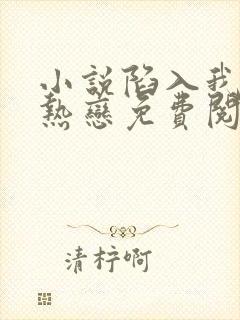 小說陷入我
熱戀免費閱
清柠啊